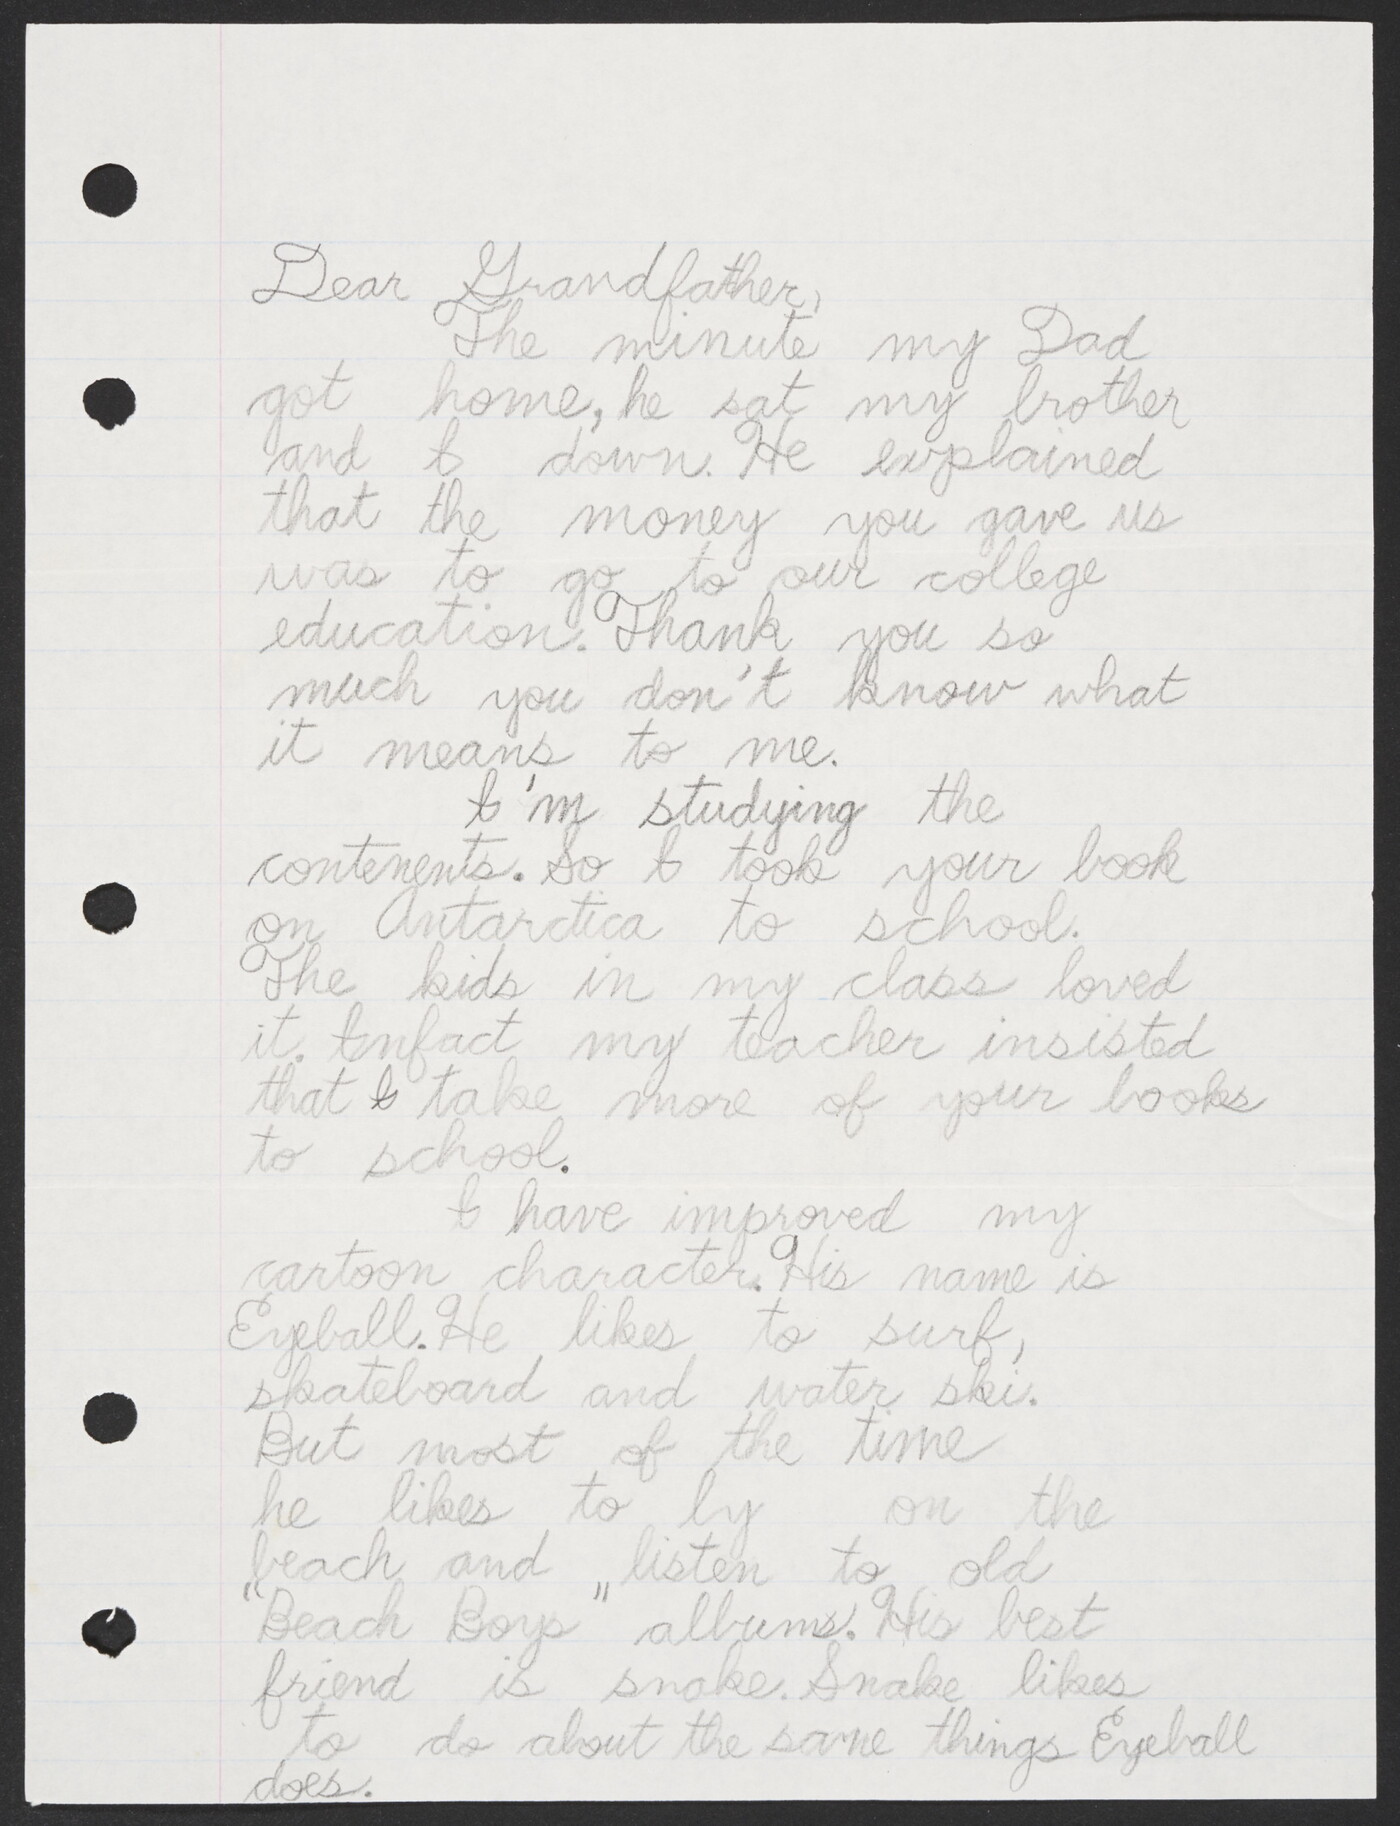 Dear Grandfather,
The minute my Dad
got home, he sat my brother
and I down. He explained
that the money you gave us
was to go to our college
education. Thank you so
much you don't know what
it means to me.
I'm studying the
contenents. So I took your book
on Antarctica to school.
The kids in my class loved
it. Infact my teacher insisted
that I take more of your books
to school.
I have improved my
cartoon character. His name is
Eyeball. He likes to surf,
skateboard and water ski.
But most of the time
he likes to ly on the
beach and listen to old
"Beach Boys" albums. His best
friend is snake. Snake likes
to do about the same things Eyeball
does.